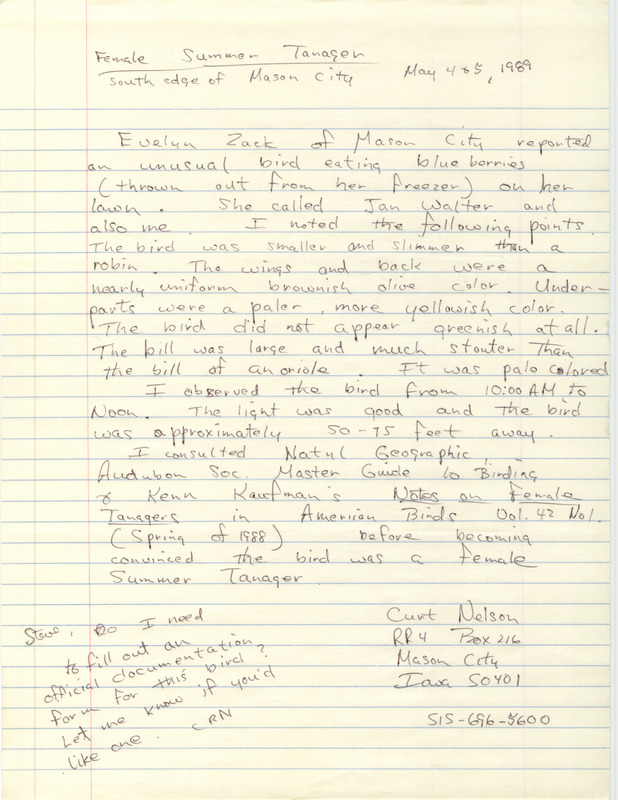 Female Summer Tanager
South edge of Mason City May 4&5, 1989
Evelyn Zack of Mason City reported
an unusual bird eating blueberries
(thrown out from her freezer) on her
lawn. She called Jan Walter and
also me. I noted the following points.
The bird was smaller and slimmer than a
robin. The wings and back were a
nearly uniform brownish olive color. Under-
parts were a paler, more yellowish color.
The bird did not appear greenish at all.
The bill was large and much stouter than
the bill of an oriole. It was pale colored
I observed the bird from 10:00 AM to
Noon. The light was good and the bird
was approximately 50-75 feet away.
I consulted Natul Geographic,
Audubon Soc. Master Guide to Birding
& Kenn Kaufman's Notes on Female
Tanagers in American Birds Vol. 42 No1.
(Spring of 1988) before becoming
convinced the bird was a female
Summer Tanager
Curt Nelson
RR4 Box 216
Mason City
Iowa 50401
515-696-5600
Steve, Do I need
to fill out an
official documentation
form for this bird?
Let me know if you'd
like one. CRN